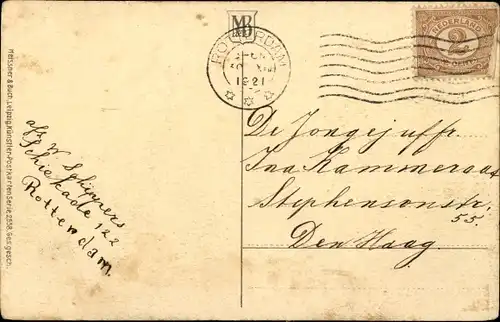 Meissner & Buch, Leipzig, Künstler-Postkarten Serie 2558. Ges. gesch.
afz. W. Schippers
Schiekade 122
Rotterdam.
MB
ROTTERDAM
1921
NEDERLAND
2
De Jongejuffr.
Ina Kammeraat
Stephensonstr.
55.
Den Haag.